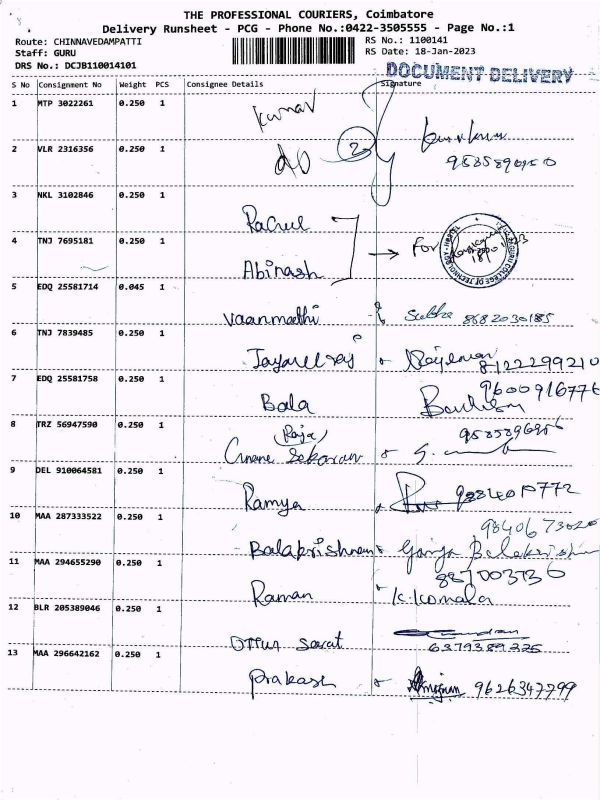 THE PROFESSIONAL COURIERS, Coimbatore
Delivery Runsheet - PCG - Phone No.:0422-3505555 - Page No.:1
Route: CHINNAVEDAMPATTI
RS No.: 1100141
Staff: GURU
RS Date: 18-Jan-2023
DRS No.: DCJB110014101
DOCUMENT DELIVERY
S No Consignment No Weight PCS Consignee Details Signature
1 MTP 3022261 0.250 1
Kumar
2 VLR 2316356 0.250 1
do 2
3 NKL 3102846 0.250 1
Rahul
4 TNJ 7695181 0.250 1
Abinash → For
5 EDQ 25581714 0.045 1
Vaanmathi Subha 8682030185
6 TNJ 7839485 0.250 1
8122299210
7 EDQ 25581758 0.250 1
9600916776
Bala
8 TRZ 56947590 0.250 1
(Raja)
Sekaran
9 DEL 910064581 0.250 1
Ramya
10 MAA 287333522 0.250 1
Balakrishnan Ganga Balakrishnan
11 MAA 294655290 0.250 1
Raman K. Komala
12 BLR 205389046 0.250 1
Sarat
13 MAA 296642162 0.250 1
Prakash 9626347799